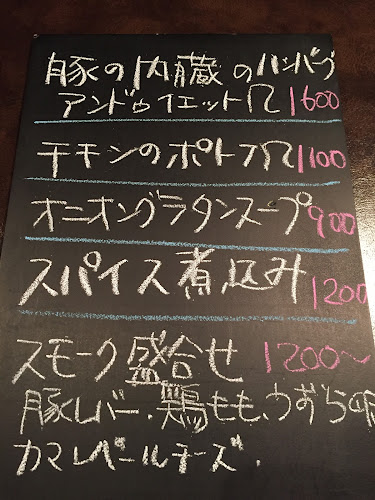 豚の内蔵のハンバーグ
アンドゥイエット 1600
チキンのポトフ 1100
オニオングラタンスープ 900
スパイス煮込み 1200
スモーク盛合せ 1200〜
豚レバー・鶏もも・うずらの
カマンベールチーズ.